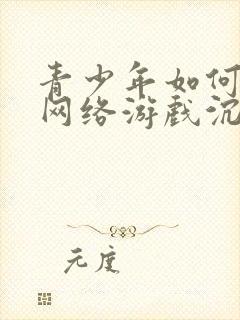 青少年如何
网络游戏沉
元度